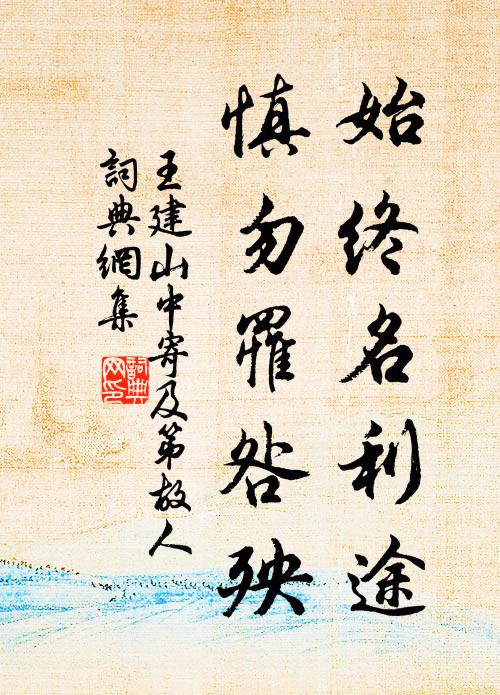 始终名利途
慎勿罹咎殃
王建山中寄及第故人
詞典網集
詞典
网印